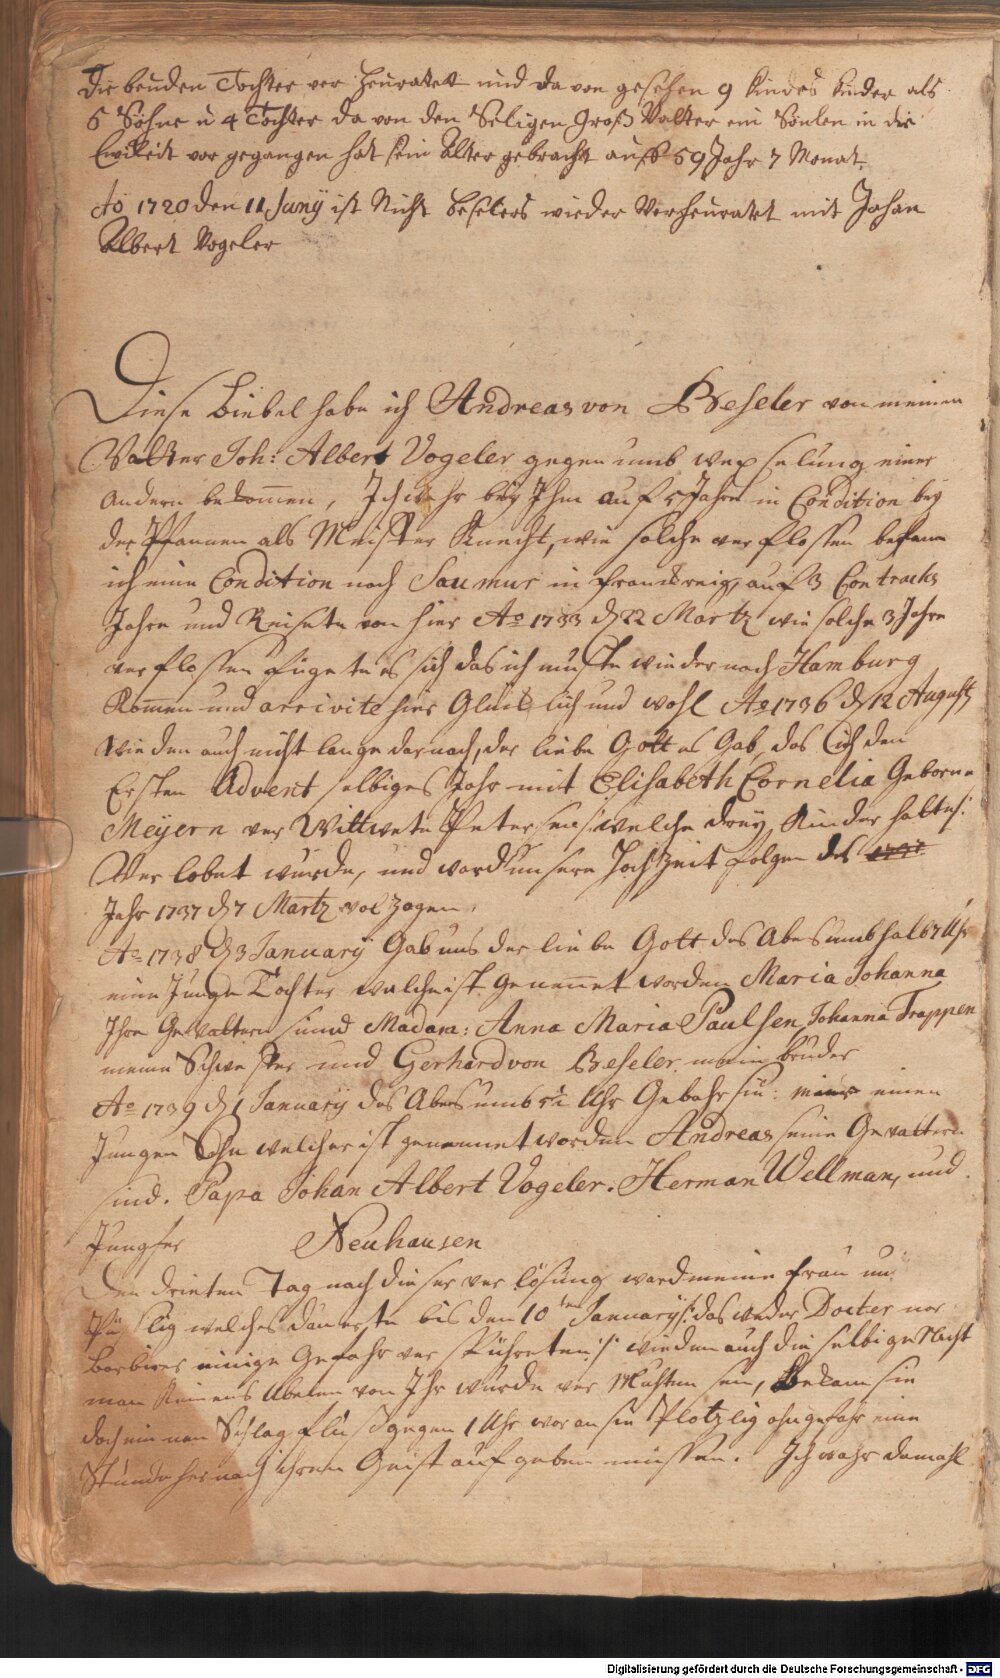 Die beuden Tochter ver heuratett und da von gesehen 9 Kindes Kinder als
5 Söhne ū 4 Tochter da von den Seligen Groß Vatter ein Sönlen in die
Ewikeit vor gegangen hat sein Alter gebracht auff 59 Jahr 7 Monat.
Aō 1720 den 11 Junÿ ist Beselers wieder Verheuratet mit Johan
Albert Vogeler
Diese Biebel habe ich Andreas von Beseler von meinem
Vatter Joh: Albert Vogeler gegen umb wexselung einer
andern bekom̄en, Ich wahr beÿ Ihm auf 5 Jahre in Condition beÿ
der Pfannen als Meister Knecht, wie solche verflossen bekam
ich eine Condition nach Saumur in franckreig, auf 3 Contracks
Jahre und Reisete von hier Aō 1733 d 22 Martz wie solche 3 Jahre
verflossen fügete es sich das ich muste wieder nach Hamburg
Kom̄en und arrivite hier Glücklich und wohl Aō 1736 d 12 August
wie den auch nicht lange darnach, der liebe Gott es Gab, das ich den
Ersten Advent selbiges Jahr mit Elisabeth Cornelia Geborne
Meÿern ver Wittwete Petersens welche dreÿ Kinder hatte
Ver lobet wurde, und ward unsere Hochzeit folgen des
Jahr 1737 d 7 Martz vol zogen.
Aō 1738 d 3 Januarÿ Gab uns der liebe Gott des Abes umb halb 7 Uhr
eine Junge Tochter welche ist Genennet worden Maria Johanna
Ihre Gevattern sind Madam: Anna Maria Paulsen, Johanna Trappen
meine Schwester und Gerhard von Beseler mein bruder
Aō 1739 d 1 Januarÿ des Abes umb 5½ Uhr Gebahr sie einen
Jungen Sohn welcher ist genennet worden Andreas seine Gevattern
sind. Papa Johan Albert Vogeler. Herman Wellman, und
Jungfer Neuhausen
Den drieten Tag nach dieser ver lösung ward meine frau un
Päslig welches dauerte bis den 10ten Januarÿ das weder Docter nor
Barbirer einige Gefahr ver spührten wie den auch die selbige Nacht
man keinens Ubelen von Ihr würde ver Muhten sein, Bekam sie
doch einnen Schlagflus gegen 1 Uhr wor an sie Plotzlig ohngefahr eine
Stunde her nach ihren Geist aufgeben müssen. Ich wahr damahl
Digitalisierung gefördert durch die Deutsche Forschungsgemeinschaft - DFG